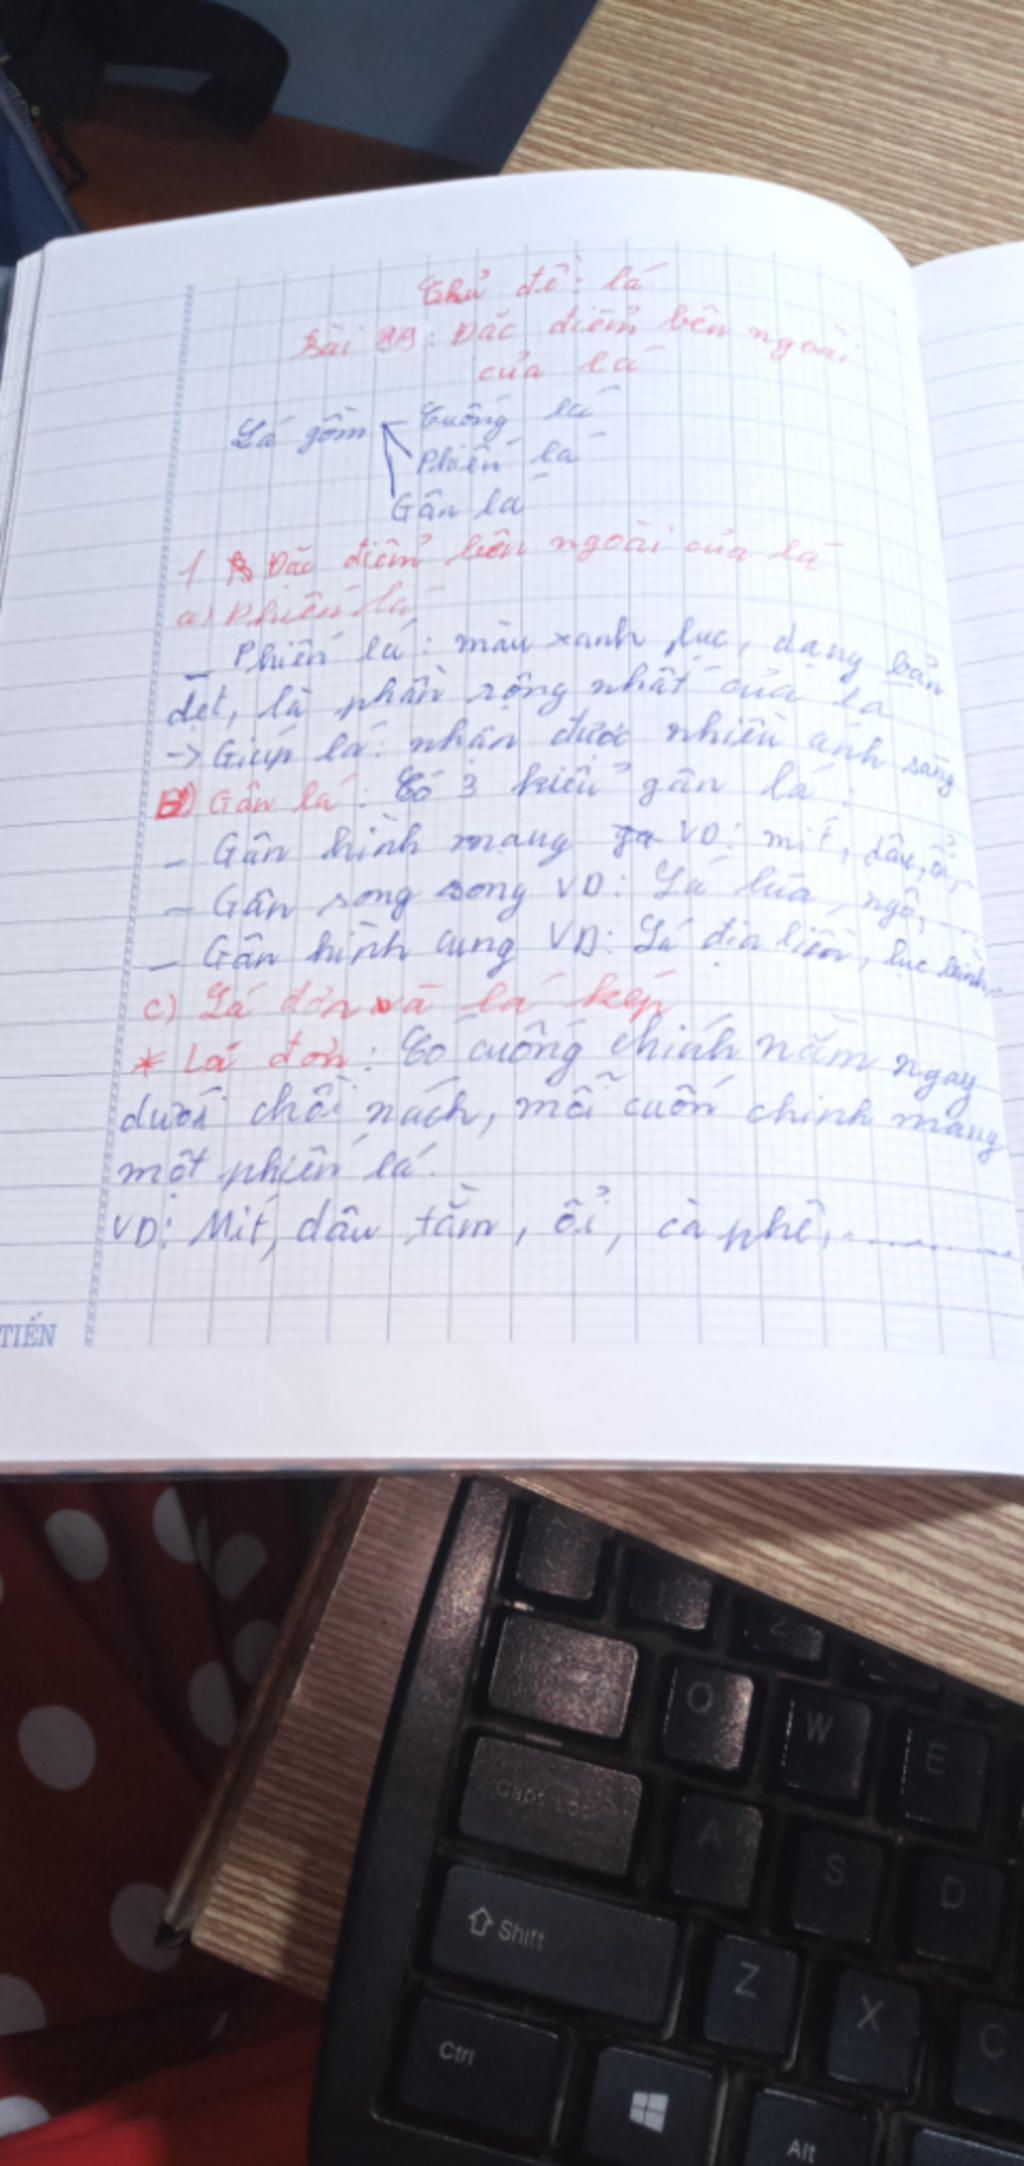 Chủ đề: lá
Bài : Đặc điểm bên ngoài
của lá
Lá gồm Cuống lá
Phiến lá
Gân lá
1 Đặc điểm bên ngoài của lá
a) Phiến lá
- Phiến lá: màu xanh lục, dạng bản
dẹt, là phần rộng nhất của lá
-> Giúp lá: nhận được nhiều ánh sáng
B) Gân lá: Có 3 kiểu gân lá:
- Gân hình mạng VD: mít, dâu, ổi,...
- Gân song song VD: Lá lúa, ngô,...
- Gân hình cung VD: Lá địa liền, lục bình,..
c) Lá đơn và lá kép
* Lá đơn: Có cuống chính nằm ngay
dưới chồi nách, mỗi cuốn chính mang
một phiến lá.
VD: Mít, dâu tằm, ổi, cà phê,..........
TIẾN
Q
W
E
Caps Lock
A
S
D
Shift
Z
X
C
Ctrl
Alt